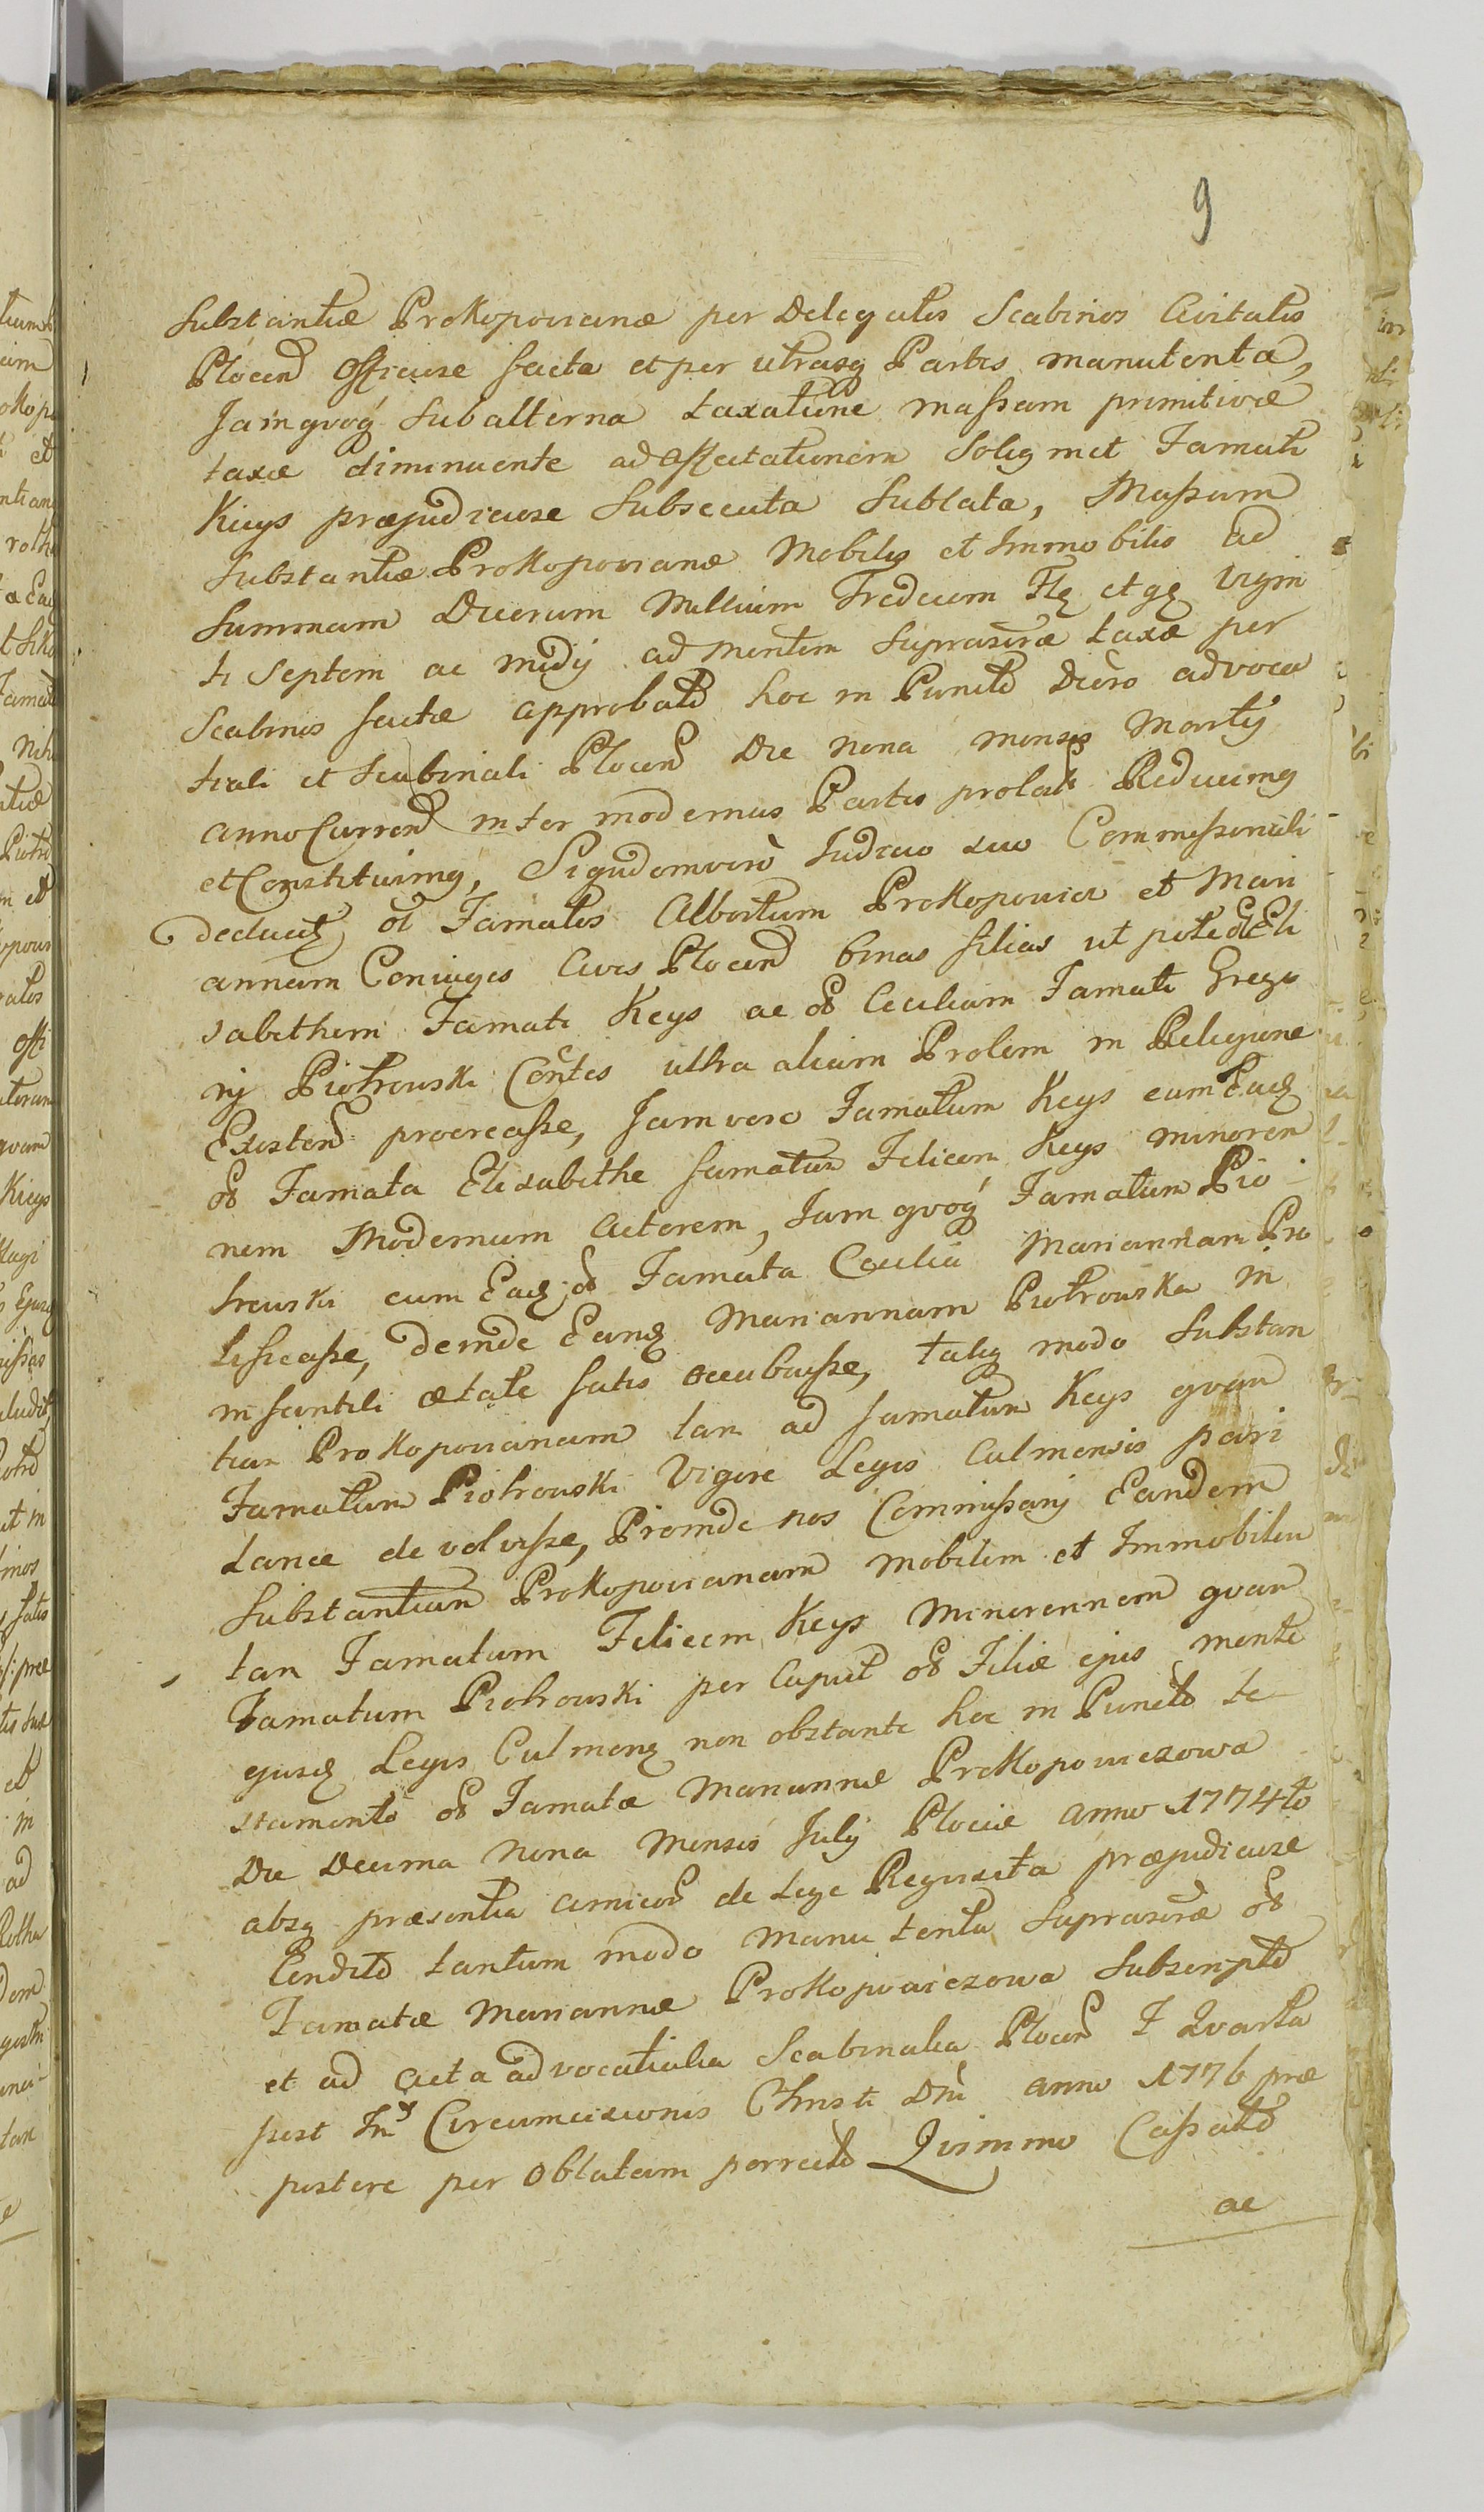 9
Substantiæ Prokopovianæ per Delegatos Scabinos Civitatis
Plocen Officiose facta et per utrasq Partes manutenta,
Jam qvoq Subalterna taxatione massam primitivæ
taxæ diminuente ad affectationem Soligmet Famati
Kieys præjudiciose Subsecuta Sublata, Massam
Substantiæ Prokopovianæ Mobilis et Immobilis ad
Summam Duorum Millium Tredecim Flg et gz Vigin
ti Septem ac medij ad mentem Suprascræ taxæ per
Scabinos factæ approbato hoc in Puncto Dcro advoca
tiali et Scabinali Plocen Die nona mensis Martij
anno Curren inter modernas Partes prolat Reducimg
et Constituimg, Siqudemvero Judicio suo Commissoriali
deducg ol Famatos Albertum Prokopowicz et Mari
annam Coniuges Cives Plocen binas filias ut pote ol Eli
sabetham Famati Keys ac ol Ceciliam Famati Grego
rij Piotrowski Contes ultra aliam Prolem in Religione
Existen procreasse, Jam vero Famatum Keys cum Eadg
ol Famata Elisabethe famatum Felicem Keys minoren
nem Modernum Actorem, Jam qvoq Famatum Pio
trowski cum Eadg ol Famata Cæcilia Mariannam Pro
lificasse, deinde Eandg Mariannam Piotrowska in
infantili ætate fatis occubuisse, taliq modo Substan
tiam Prokopovianam tam ad famatum Keys qvam
Famatum Piotrowski Vigore Legis Culmensis pari
Lance devolvisse, Proinde nos Commissarij Eandem
Substantiam Prokopovianam Mobilem et Immobilem
tam Famatum Felicem Keys Minorennem qvam
Famatum Piotrowski per Caput ol Filiæ ejus mente
ejusdg Legis Culmeng non obstante hoc in Puncto te
stamento ol Famatæ Mariannæ Prokopowiczowa
Die Decima Nona Mensis Julij Plociæ Anno 1774to
absq præsentia amicor de Lege Reqvisita præjudiciose
Condito tantum modo manu tenta Suprascræ ol
Famatæ Mariannæ Prokopowiczowa Subscripto
et ad Acta advocatialia Scabinalia Plocen F Qvarta
post Fm Circumcisionis Christi Dni anno 1776 præ
postere per Oblatam porrecto Qvimmo Cassato
ac